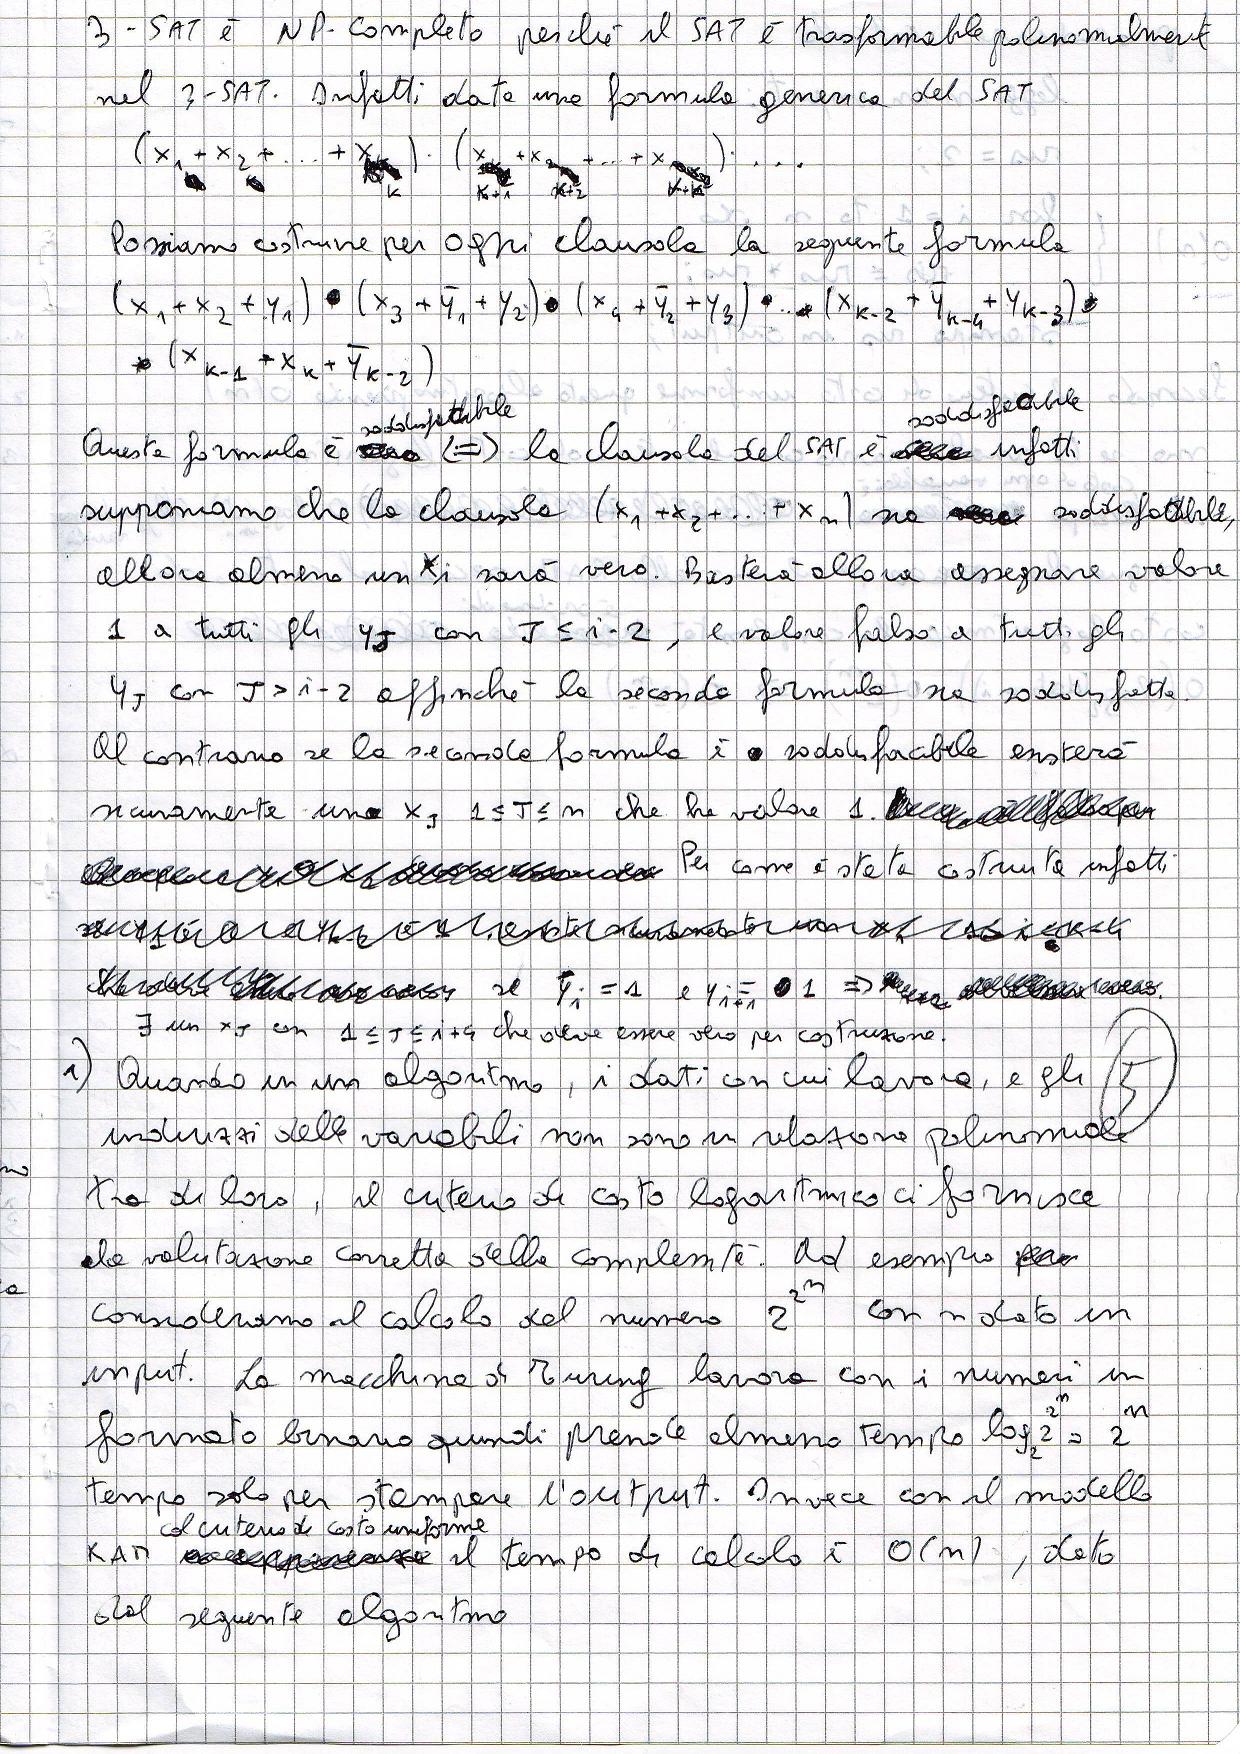 3-SAT è NP-Completo perché il SAT è trasformabile polinomialment
nel 3-SAT. Infatti data una formula generica del SAT
(x₁ + x₂ + .... + x_k) · (x_k+1 + x_k+2 + ... + x) · ...
Possiamo costruire per ogni clausola la seguente formula
(x₁ + x₂ + y₁) • (x₃ + ȳ₁ + y₂) • (x₄ + ȳ₂ + y₃) • ... • (x_K-2 + ȳ_K-4 + y_K-3) •
• (x_K-1 + x_K + ȳ_K-2)
Questa formula è soddisfattibile (=) la clausola del SAT è soddisfacibile infatti
supponiamo che la clausola (x₁ + x₂ + ... + x_n) sia soddisfattibile,
allora almeno un x_i sarà vero. Basterà allora assegnare valore
1 a tutti gli y_J con J ≤ i-2, e valore falso a tutti gli
y_J con J > i-2 affinché la seconda formula sia soddisfatta.
Al contrario se la seconda formula è soddisfacibile esisterà
sicuramente una x_J 1 ≤ J ≤ n che ha valore 1.
Per come è stata costruita infatti
se ȳ_i = 1 e y_i+1 = 1 =>
∃ un x_J con 1 ≤ J ≤ i+4 che deve essere vero per costruzione.
1) Quando in un algoritmo, i dati con cui lavora, e gli 5
indirizzi delle variabili non sono in relazione polinomiale
tra di loro, il criterio di costo logaritmico ci fornisce
la valutazione corretta della complessità. Ad esempio
consideriamo il calcolo del numero 2^2^n con n dato in
input. La macchina di Turing lavora con i numeri in
formato binario quindi prende almeno tempo log₂ 2^2^n = 2^n
tempo solo per stampare l'output. Invece con il modello
col criterio di costo uniforme
RAM il tempo di calcolo è O(n), dato
dal seguente algoritmo